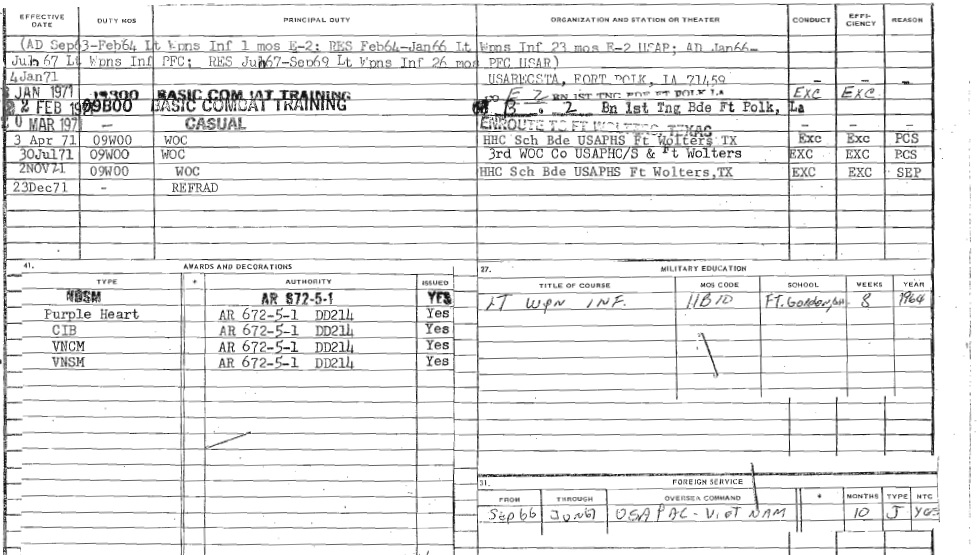 EFFECTIVE DATE DUTY MOS PRINCIPAL DUTY ORGANIZATION AND STATION OR THEATER CONDUCT EFFI-CIENCY REASON
(AD Sep63-Feb64 Lt Wpns Inf 1 mos E-2; RES Feb64-Jan66 Lt Wpns Inf 23 mos E-2 USAR; AD Jan66-
Jun 67 Lt Wpns Inf PFC; RES Jun67-Sep69 Lt Wpns Inf 26 mos PFC USAR)
4Jan71 USARECSTA, FORT POLK, LA 71459 - -
JAN 1971 BASIC COMBAT TRAINING E 2 BN 1ST TNG BDE FT POLK LA Exc Exc
2 FEB 19 09B00 BASIC COMBAT TRAINING B 2 Bn 1st Tng Bde Ft Polk, La
0 MAR 197 - CASUAL ENROUTE TO FT WOLTERS, TEXAS - - -
3 Apr 71 09W00 WOC HHC Sch Bde USAPHS Ft Wolters TX Exc Exc PCS
30Jul71 09W00 WOC 3rd WOC Co USAPHC/S & Ft Wolters EXC EXC PCS
2NOV71 09W00 WOC HHC Sch Bde USAPHS Ft Wolters,TX EXC EXC SEP
23Dec71 - REFRAD
41. AWARDS AND DECORATIONS
TYPE * AUTHORITY ISSUED
NDSM AR 672-5-1 YES
Purple Heart AR 672-5-1 DD214 Yes
CIB AR 672-5-1 DD214 Yes
VNCM AR 672-5-1 DD214 Yes
VNSM AR 672-5-1 DD214 Yes
27. MILITARY EDUCATION
TITLE OF COURSE MOS CODE SCHOOL WEEKS YEAR
LT WPN INF. 11B10 FT. Gordon, GA 8 1964
31. FOREIGN SERVICE
FROM THROUGH OVERSEA COMMAND * MONTHS TYPE NTC
Sep66 Jun67 USAPAC-VIET NAM 10 J YES